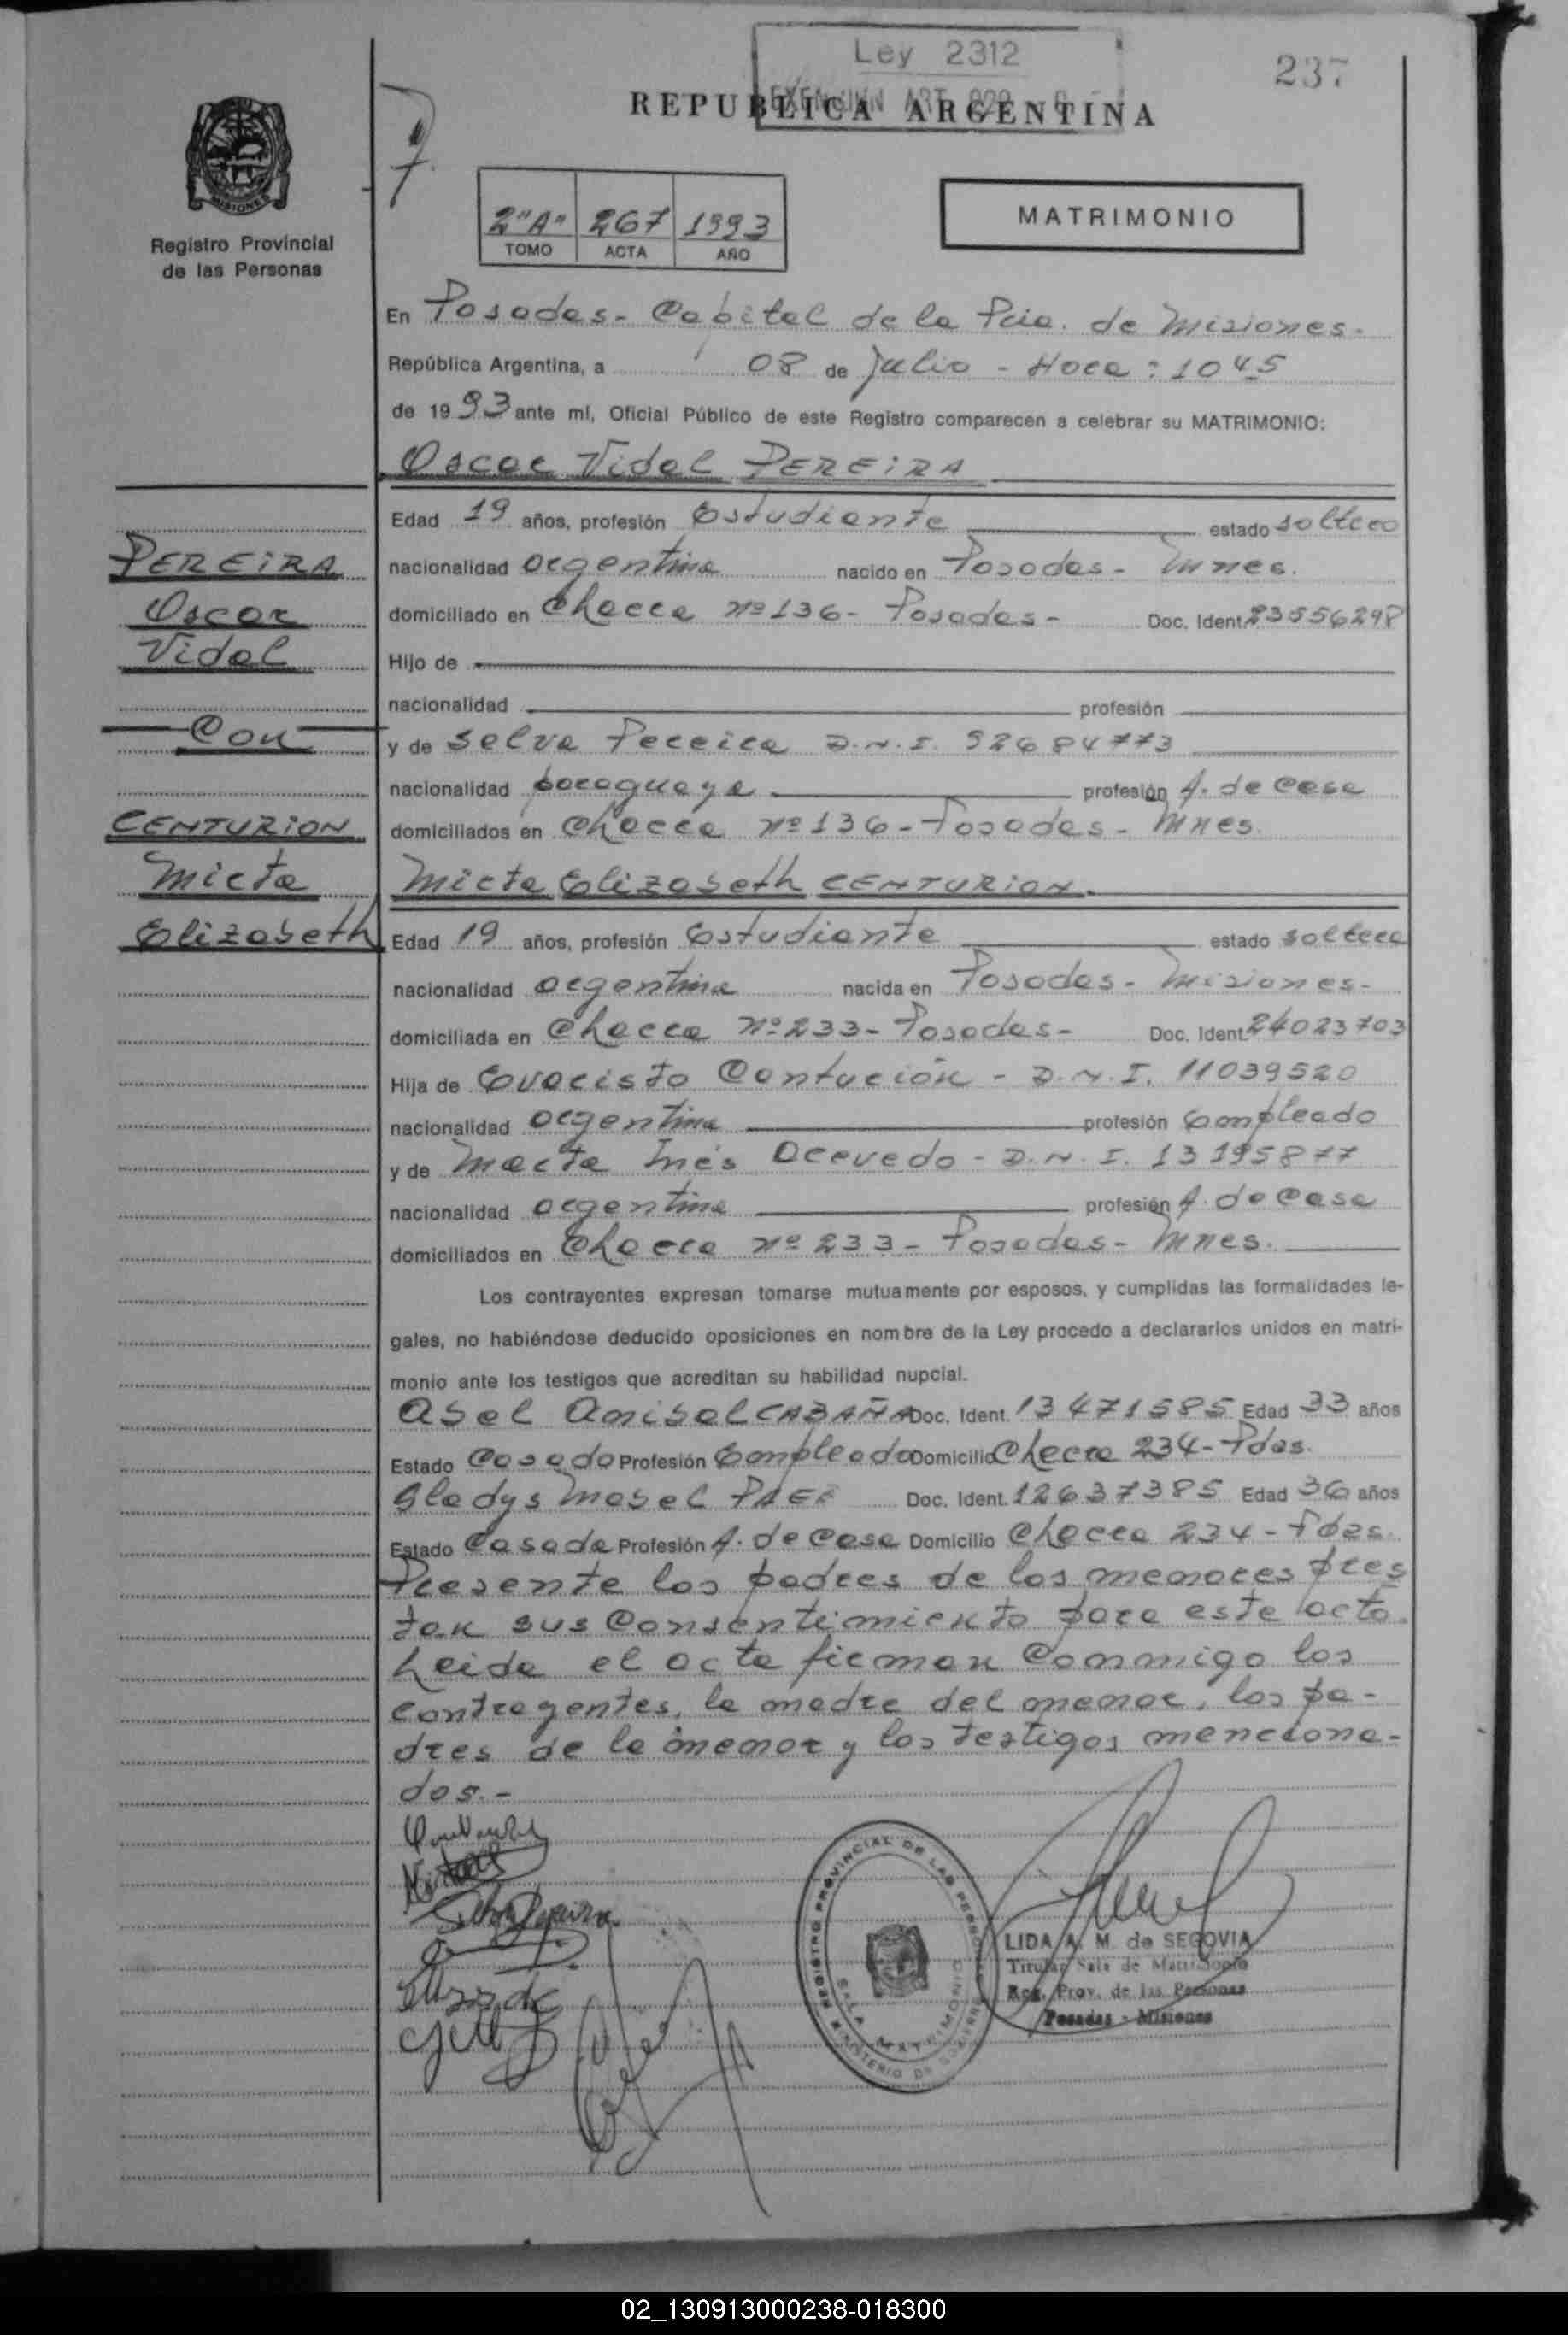 Ley 2312
237
REPUBLICA ARGENTINA
MISIONES
Registro Provincial
de las Personas
2"A" 267 1993
TOMO ACTA AÑO
MATRIMONIO
En Posadas- Capital de la Pcia. de Misiones.
República Argentina, a 08 de Julio - Hora: 1045
de 1993 ante mí, Oficial Público de este Registro comparecen a celebrar su MATRIMONIO:
Oscar Vidal PEREIRA
Edad 19 años, profesión Estudiante estado soltero
PEREIRA
nacionalidad argentina nacido en Posadas- Mnes.
Oscar
domiciliado en Chacra nº 136- Posadas- Doc. Ident. 23556298
Vidal
Hijo de
nacionalidad profesión
Con
y de Selva Pereira D.N.I. 92684773
nacionalidad paraguaya profesión A. de Casa
CENTURION
domiciliados en Chacra nº 136- Posadas- Mnes.
Mirta
Mirta Elizabeth CENTURION.
Elizabeth
Edad 19 años, profesión Estudiante estado soltera
nacionalidad argentina nacida en Posadas- Misiones-
domiciliada en Chacra nº 233- Posadas- Doc. Ident. 24023703
Hija de Evaristo Centurión - D.N.I. 11039520
nacionalidad argentina profesión Empleado
y de Marta Inés Acevedo - D.N.I. 13195877
nacionalidad argentina profesión A. de Casa
domiciliados en Chacra nº 233- Posadas- Mnes.
Los contrayentes expresan tomarse mutuamente por esposos, y cumplidas las formalidades le-
gales, no habiéndose deducido oposiciones en nombre de la Ley procedo a declararlos unidos en matri-
monio ante los testigos que acreditan su habilidad nupcial.
Abel Anibal CABAÑA Doc. Ident. 13471585 Edad 33 años
Estado Casado Profesión Empleado Domicilio Chacra 234- Pdas.
Gladys Mabel PAEZ Doc. Ident. 12637385 Edad 36 años
Estado Casada Profesión A. de Casa Domicilio Chacra 234- Pdas.
Presente los padres de los menores pres
tan sus Consentimiento para este acto.
Leida el acta firman Conmigo los
contrayentes, la madre del menor, los pa-
dres de la menor y los testigos menciona-
dos.-
REGISTRO PROVINCIAL DE LAS PERSONAS
SALA MATRIMONIO
LIDA A. M. de SEGOVIA
Titular Sala de Matrimonio
Reg. Prov. de las Personas
Posadas - Misiones
02_130913000238-018300